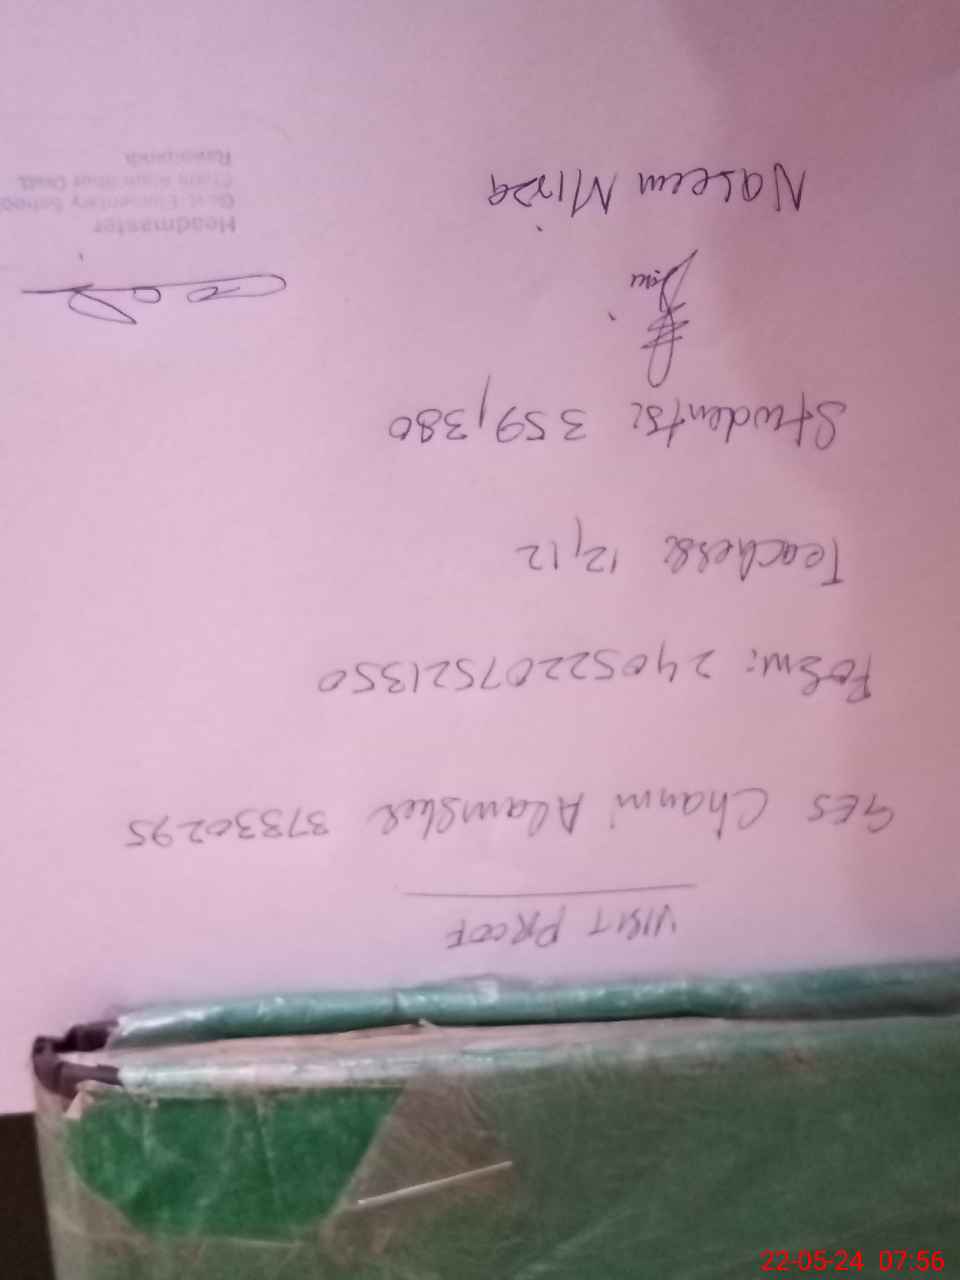 VISIT PROOF
GES Channi Alamsher 37330295
Form: 24052207521350
Teachers: 12,12
Students: 359,380
Naseem Mirza
Headmaster
Govt. Elementary School
Rawalpindi
22-05-24 07:56